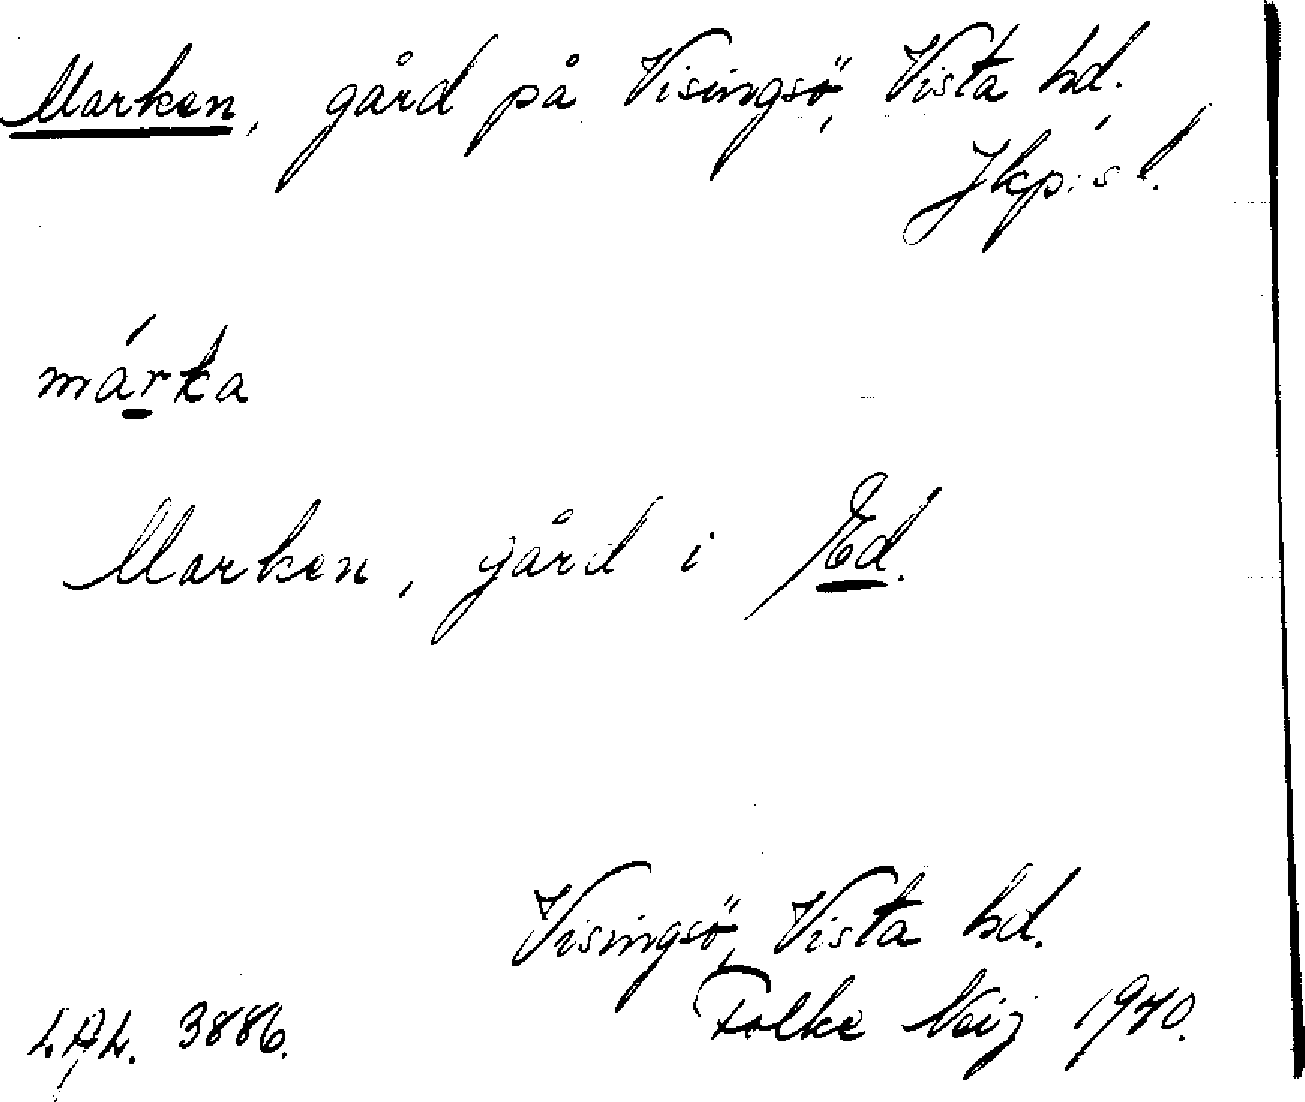 Marken, gård på Visingsö, Vista hd.
Jkp:s l.
márka
Marken, gård i Ed.
Visingsö, Vista hd.
L.A.L. 3886. Folke Neij 1940.